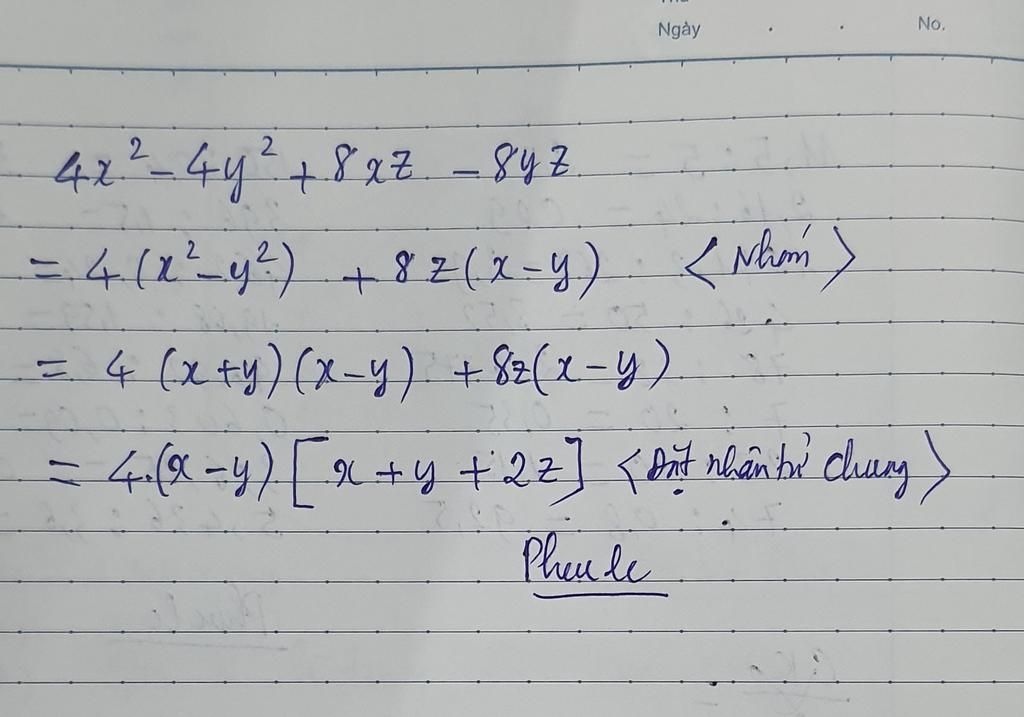 Ngày . . No.
4x² - 4y² + 8xz - 8yz
= 4(x² - y²) + 8z(x - y) <Nhóm>
= 4 (x + y)(x - y) + 8z(x - y)
= 4.(x - y) [x + y + 2z] <Đặt nhân tử chung>